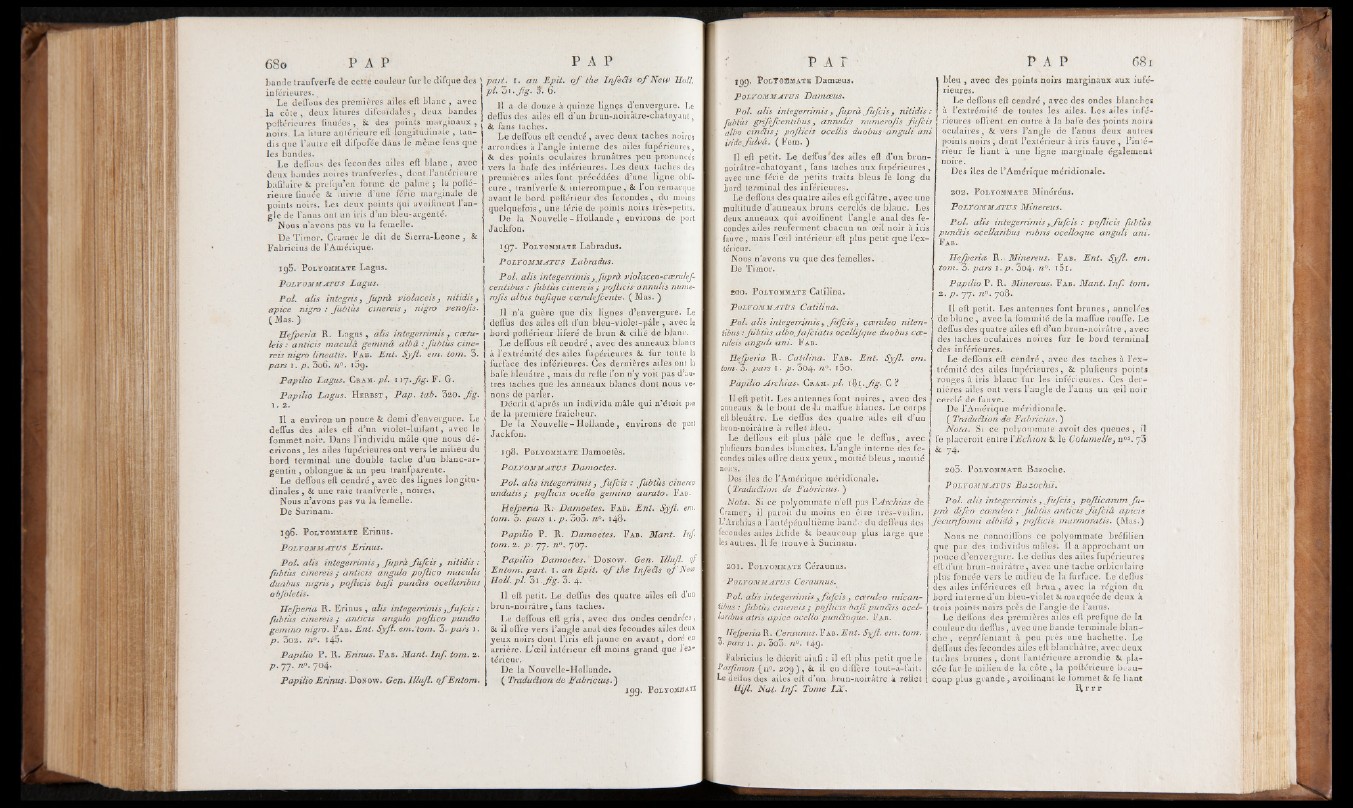 680 P A P
bande transverse de cette couleur sur le disque des
inférieures.
Le dessous des premières ailes est blanc , avec
la côte , deux litures discoïdales, deux bandes
postérieures sinuées , & des points marginaux ,
noirs. La liture antérieure est longitudinale , tan-
dis que l'autre est disposée dans le même sens que
les bandes.
Le dessous des secondes ailes est blanc , avec
deux bandes noires transverses , dont l'antérieure
basilaire & presqu'en forme de palme ; la posté-
rieure sinuée & suivie d'une série marginale de
points noirs. Les deux points qui avoisinent l'an-
gle de l'anus ont un iris d'un bleu-argenté.
Nous n'avons pas vu la femelle.
De Timor. Cramer le dit de Sierra-Leone , &
Fabricius de l'Amérique.
195. POLYOMMATE Lagus.
POLYOMMATUS Lagus.
Pol. alis integris, suprà violaceis, nitidis,
apice nigro : subtùs cinereis , nigro venosis.
( Mas. )
Hesperia R. Lagus , alis integerrimis , cœru-
leis : anticis maculâ geminâ albâ : subtùs cine-
reis nigro lineatis. FAB. Ent. Syst. em. tom. 3.
pars 1. p. 306. n°. 159.
Papilio Lagus. CRAM. pl. 117. fig. F. G.
Papilio Lagus. HERBST , Pap. tab. 320. fig.
1. 2.
Il a environ un pouce & demi d'envergure. Le
dessus des ailes est d'un violet-luisant, avec le
sommet noir. Dans l'individu mâle que nous dé-
crivons , les ailes supérieures ont vers le milieu du
bord terminal une double tache d'un blanc-ar-
gentin , oblongue & un peu transparente.
Le dessous est cendré , avec des lignes longitu-
dinales , & une raie transverse , noires.
Nous n'avons pas vu la femelle.
De Surinam.
196. POLYOMMATE Erinus.
POLYOMMATUS Erinus.
Pol. alis integerrimis , suprà fuscis , nitidis :
subtùs cinereis ; anticis angulo postico maculis
duabus nigris, posticis basi punctis ocellaribus
obsoletis.
Hesperia R. Erinus , alis integerrimis , fuscis :
subtùs cinereis ; anticis angulo postico puncto
gemino nigro. FAB. Ent. Syst. em. tom. 3. pars 1.
p. 302. n°. 145.
Papilio P. R. Erinus. FAB. Mant. Inf. tom. 2.
p. 77. n°. 704.
Papilio Erinus. DONOW. Gen. Illust. of Entom.
P A P
part. 1. an Epit. of the Insects of New Holl.
pl. 31. fig. 3. 6.
Il a de douze à quinze lignes d'envergure. Le
dessus des ailes est d'un brun-noirâtre-chatoyant,
& sans taches.
Le dessous est cendré , avec deux taches noires
arrondies à l'angle interne des ailes supérieures,
& des points oculaires brunâtres peu prononcés
vers la base des inférieures. Les deux taches des
premières ailes sont précédées d'une ligne obs-
cure , transverse & interrompue , & l'on remarque
avant le bord postérieur des secondes , du moins
quelquefois , une série de points noirs très-petits.
De la Nouvelle-Hollande , environs de port
Jackson.
197. POLYOMMATE Labradus.
POLYOMMATUS Labradus.
Pol. alis integerrimis , suprà violaceo-cœrules-
centibus : subtùs cinereis ; posticis annulis nume-
rosis albis basique cœrulescente. ( Mas. )
Il n'a guère que dix lignes d'envergure. Le
dessus des ailes est d'un bleu-violet-pâle , avec le
bord postérieur liseré de brun & cilié de blanc.
Le dessous est cendré , avec des anneaux blancs
à l'extrémité des ailes supérieures & sur toute la
surface des inférieures. Ces dernières ailes ont la
base bleuâtre , mais du reste l'on n'y voit pas d'au-
tres taches que les anneaux blancs dont nous ve-
nons de parler.
Décrit d'après un individu mâle qui n'étoit pas
de la première fraîcheur.
De la Nouvelle-Hollande , environs de port
Jackson.
198. POLYOMMATE Damoetès.
POLYOMMATUS Damoetes.
Pol. alis integerrimis , fuscis : subtùs cinereo
undatis ; posticis ocello gemino aurato. FAB.
Hesperia R. Damoetes. FAB. Ent. Syst. em.
tom. 3. pars 1. p. 303. n°. 148.
Papilio P. R. Damoetes. FAB. Mant. Inf.
tom. 2. p. 77. n°. 707.
Papilio Damoetes. DONOW. Gen. Illust. of
Entom. part. 1. an Epit. of the Insects of New
Holl. pl. 31 fig. 3. 4.
Il est petit. Le dessus des quatre ailes est d'un
brun-noirâtre , sans taches.
Le dessous est gris , avec des ondes cendrées ,
& il offre vers l'angle anal des secondes ailes deux
yeux noirs dont l'iris est jaune en avant , doré en
arrière. L'œil intérieur est moins grand que l'ex-
térieur.
De la Nouvelle-Hollande.
( Traduction de Fabricius. )
199. POLYOMMATE
P A P
199. POLYOMMATE Damæus.
POLYOMMATUS Damœus.
Pol. alis integerrimis , suprà fuscis , nitidis :
subtùs grisescentibus, annulis numerosis fuscis
albo cinctis ; posticis ocellis duobus anguli ani
iride fulvâ. ( Fem. )
Il est petit. Le dessus des ailes est d'un brun-
noirâtre-chatoyant , sans taches aux supérieures ,
avec une série de petits traits bleus le long du
bord terminal des inférieures.
Le dessous des quatre ailes est grisâtre , avec une
multitude d'anneaux bruns cerclés de blanc. Les
deux anneaux qui avoisinent l'angle anal des se-
condes ailes renferment chacun un œil noir à iris
fauve , mais l'œil intérieur est plus petit que l'ex-
térieur.
Nous n'avons vu que des femelles.
De Timor.
200. POLYOMMATE Catilina.
POLYOMMATUS Catilina.
Pol. alis integerrimis , fuscis , cœruleo niten-
tibus : subtùs albo fasciatis ocellisque duobus cœ-
ruleis anguli ani. FAB.
Hesperia R. Catilina. FAB. Ent. Syst. em.
tom. 3. pars 1. p. 304. n°. 150.
Papilio Archias. CRAM. pl. 181. fig. C ?
Il est petit. Les antennes sont noires , avec des
anneaux & le bout de la massue blancs. Le corps
est bleuâtre. Le dessus des quatre ailes est d'un
brun-noirâtre à reflet bleu.
Le dessous est plus pâle que le dessus, avec
plusieurs bandes blanches. L'angle interne des se-
condes ailes offre deux yeux , moitié bleus , moitié
noirs.
Des îles de l'Amérique méridionale.
( Traduction de Fabricius. )
Nota. Si ce polyommate n'est pas l'Archias de
Cramer, il paroît du moins en être très-voisin.
L'Archias a l'antépénultième bande du dessous des
secondes ailes bifide & beaucoup plus large que
les autres. Il se trouve à Surinam.
201. POLYOMMATE Céraunus.
POLYOMMATUS Ceraunus.
Pol. alis integerrimis , fuscis , cœruleo mican-
tibus : subtùs cinereis ; posticis basi punctis ocel-
laribus atris apice ocello punctoque. FAB.
Hesperia R. Ceraunus. FAB. Ent. Syst. em. tom.
3. pars 1. p. 303. n°. 149.
Fabricius le décrit ainsi : il est plus petit que le
(n°. 209), & il en diffère tout-à-fait.
Le dessus des ailes est d'un brun-noirâtre à reflet
Hist. Nat. Inf. Tome IX.
P A P 681
bleu , avec des points noirs marginaux aux infé-
rieures.
Le dessous est cendré , avec des ondes blanches
à l'extrémité de toutes les ailes. Les ailes infé-
rieures offrent en outre à la base des points noirs
oculaires , & vers l'angle de l'anus deux autres
points noirs , dont l'extérieur à iris fauve , l'inté-
rieur se liant à une ligne marginale également
noire.
Des îles de l'Amérique méridionale.
202. POLYOMMATE Minéréus.
POLYOMMATUS Minereus.
Pol. alis integerrimis, fuscis : posticis subtùs
punctis ocellaribus rubris ocelloque anguli ani.
FAB.
Hesperia R. Minereus. FAB. Ent. Syst. em.
tom. 3. pars 1. p. 304. n°. 151.
Papilio P. R. Minereus. FAB. Mant. Inf. tom.
2. p. 77. n°. 708.
Il est petit. Les antennes sont brunes , annelées
de blanc , avec la sommité de la massue rousse. Le
dessus des quatre ailes est d'un brun-noirâtre , avec
des taches oculaires noires sur le bord terminal
des inférieures.
Le dessous est cendré , avec des taches à l'ex-
trémité des ailes supérieures , & plusieurs points
rouges à iris blanc sur les inférieures. Ces der-
nières ailes ont vers l'angle de l'anus un œil noir
cerclé de fauve.
De l'Amérique méridionale.
( Traduction de Fabricius. )
Nota. Si ce polyommate avoit des queues , il
se placeroit entre l'Echion & le Columelle, nos. 73
& 74.
203. POLYOMMATE Bazoche.
POLYOMMATUS Bazochii.
Pol. alis integerrimis , fuscis , posticarum su-
prà disco cœruleo : subtùs anticis fasciâ apicis
securiformi albidâ , posticis marmoratis. (Mas.)
Nous ne connoissons ce polyommate brésilien
que par des individus mâles. Il a approchant un
pouce d'envergure. Le dessus des ailes supérieures
est d'un brun-noirâtre , avec une tache orbiculaire
plus foncée vers le milieu de la surface. Le dessus
des ailes inférieures est brun , avec la région du
bord interne d'un bleu-violet & marquée de deux à
trois points noirs près de l'angle de l'anus.
Le dessous des premières ailes est presque de la
couleur du dessus , avec une bande terminale blan-
che , représentant à peu près une hachette. Le
dessous des secondes ailes est blanchâtre, avec deux
taches brunes , dont l'antérieure arrondie & pla-
cée sur le milieu de la côte , la postérieure beau-
coup plus grande , avoisinant le sommet & se liant
R r r r